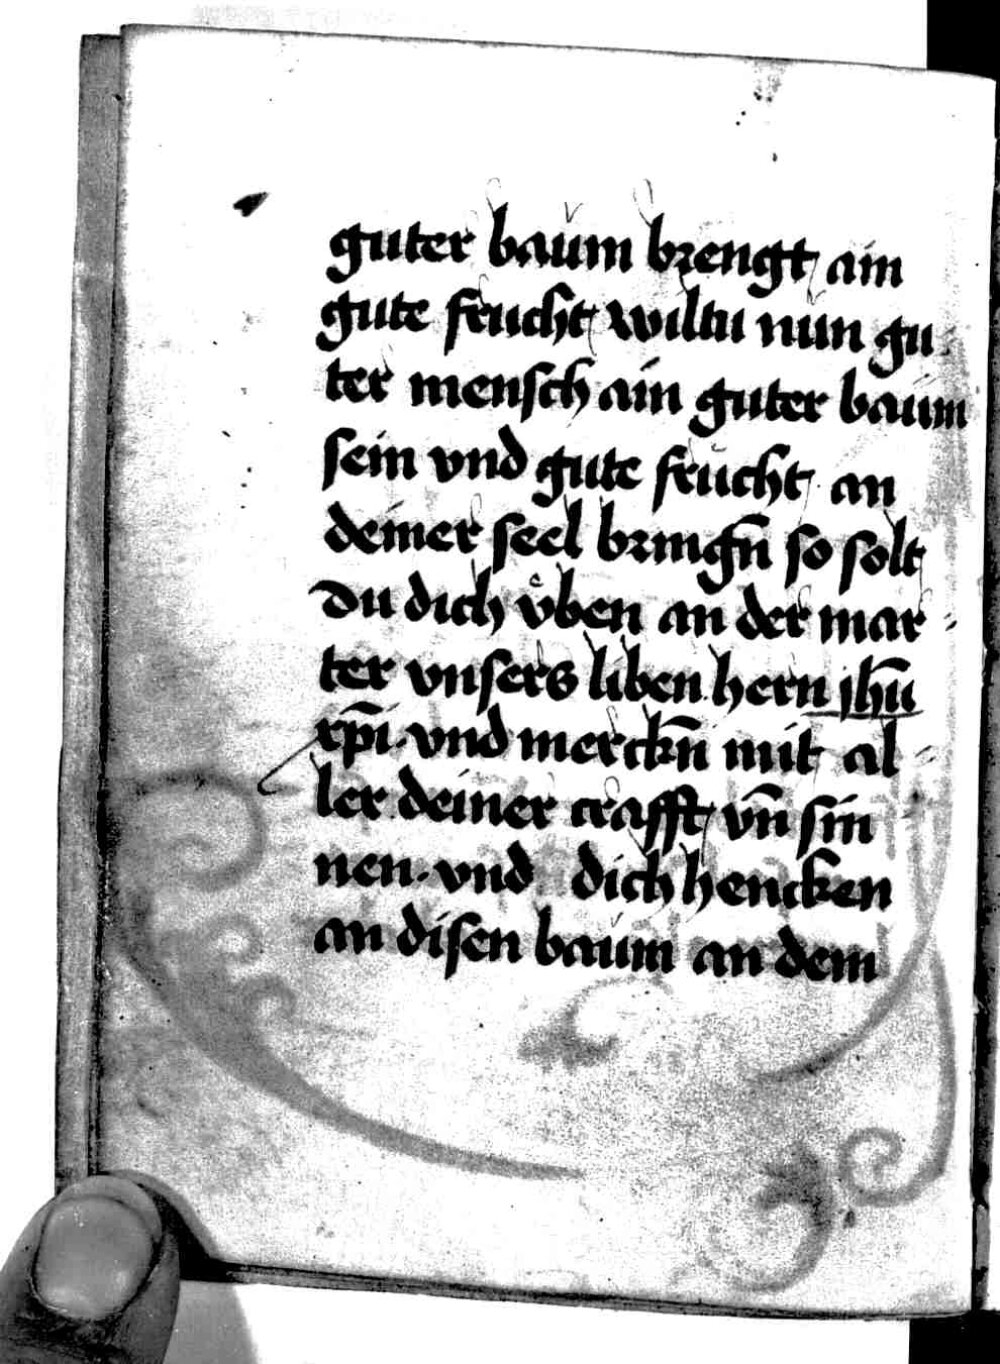 guter baům brengt ain
gute frucht wiltu nůn gu
ter mensch ain guter baům
sein vnd gute frůcht an
deiner seel bringn̄ so solt
Du dich v̊ben an der mar
ter vnsers liben hern jhū
xp̄i. vnd merckn̄ mit al
ler deiner crafft vn̄ sin
nen. vnd dich hencken
an disen baům an dem